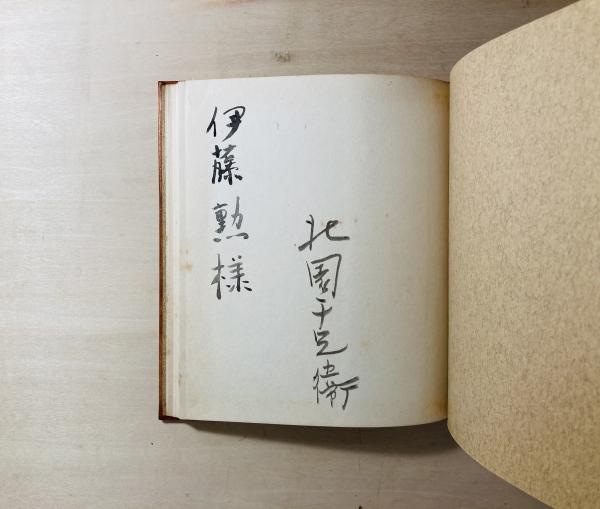 北園克衛
伊藤勲様